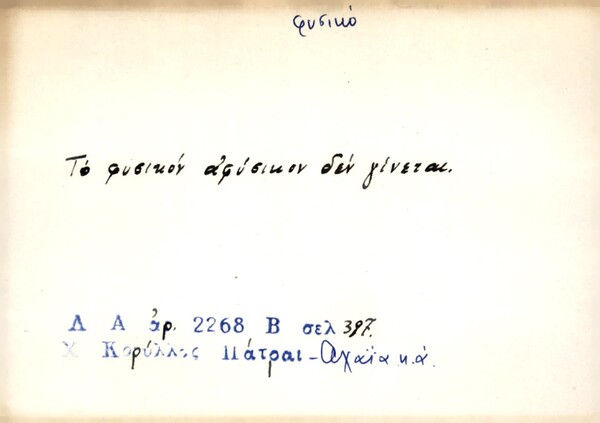 φυσικό
Τό φυσικόν ἀφύσικον δέν γίνεται.
Λ Α ἀρ. 2268 Β σελ 397.
Χ Κορύλλος Πάτραι - Ἀχαΐα κ.ἀ.